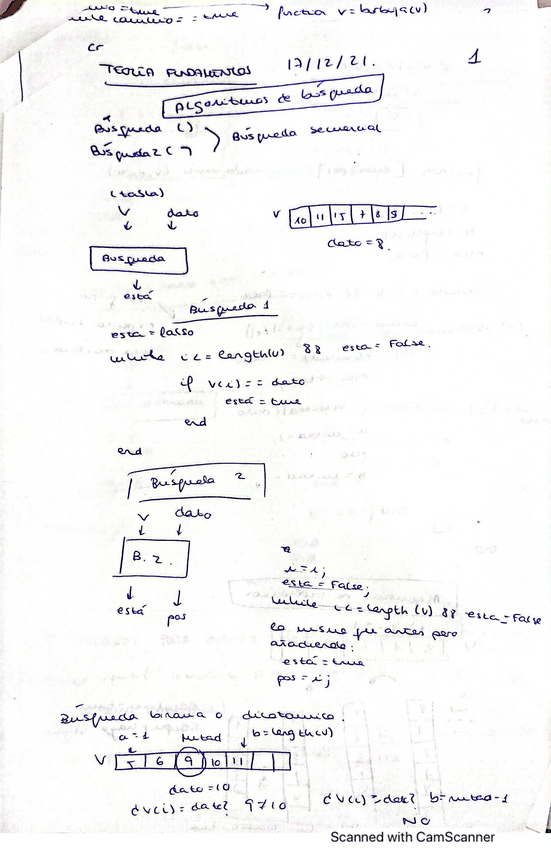 = true function v = burbuja(v)
= = true
TEORÍA FUNDAMENTOS 17/12/21. 1
Algoritmos de búsqueda
Búsqueda ()
Búsqueda 2 ( ) Búsqueda secuencial
(tabla)
V dato
V 10 11 15 7 8 9 ...
dato = 8.
Busqueda
está
Búsqueda 1
esta = falso
while i <= length(v) && esta = False.
if v(i) == dato
está = true
end
end
Búsqueda 2
V dato
B. 2.
está pos
i = 1;
está = False;
while i <= length (v) && esta = False
lo mismo que antes pero
añadiendo:
está = true
pos = i;
Búsqueda binaria o dicotómica.
a = 1 Mitad b = length(v)
V 5 6 9 10 11
dato = 10
¿V(i) = dato? 9≠10 ¿V(i) = dato? b = mitad - 1
NO
Scanned with CamScanner